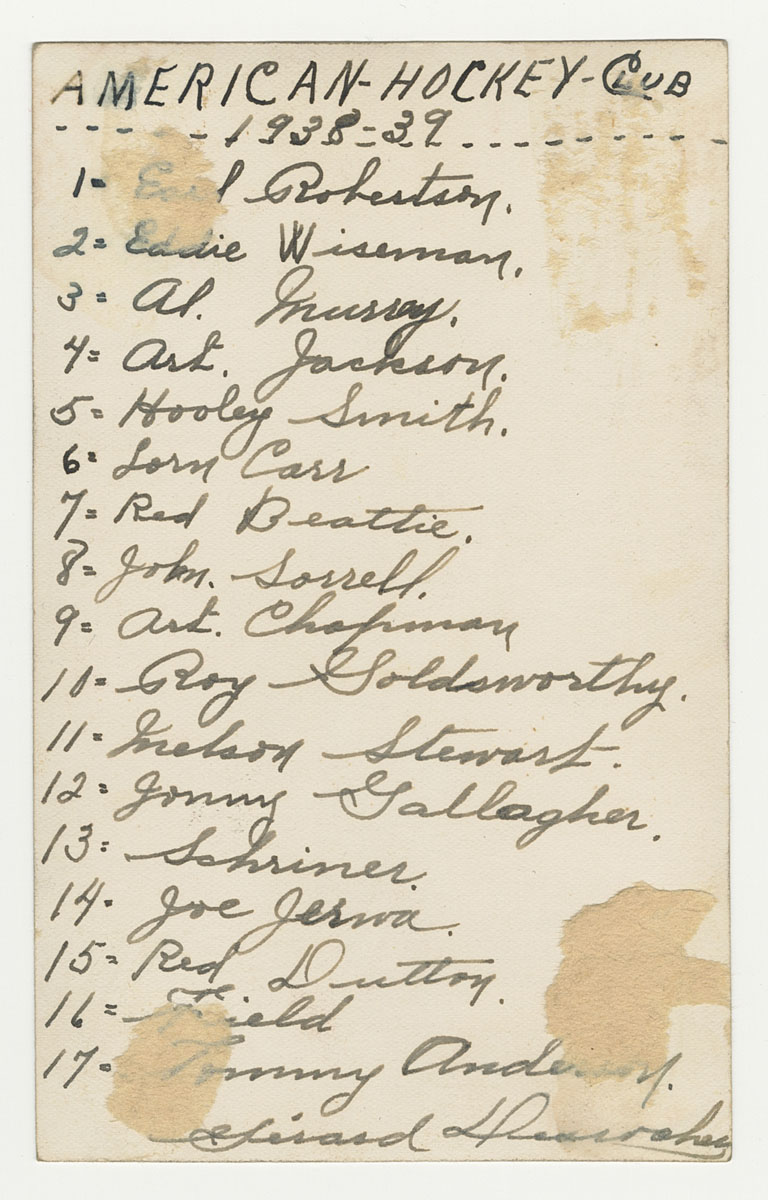 AMERICAN-HOCKEY-CLUB
- - - - - 1938=39 - - - - - - - - -
1= Earl Robertson.
2= Eddie Wiseman.
3= Al. Murray.
4= Art. Jackson.
5= Hooley Smith.
6= Lorn Carr
7= Red Beattie.
8= John. Sorrell.
9= Art. Chapman
10= Roy Goldsworthy.
11= Nelson Stewart.
12= Jonny Gallagher.
13= Schriner.
14- Joe Jerwa.
15= Red Dutton.
16= Field
17= Tommy Anderson.
Gérard